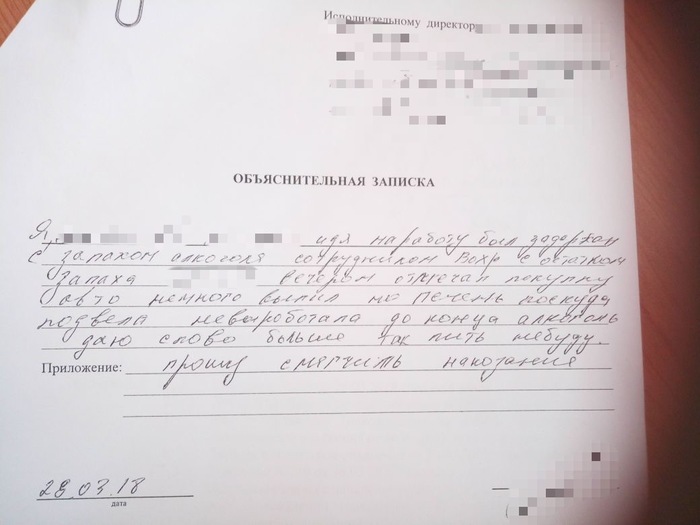 Исполнительному директор
ОБЪЯСНИТЕЛЬНАЯ ЗАПИСКА
Я, идя наработу был задержан
с запахом алкоголя сотрудником Вохр с остатком
запаха вечером отмечал покупку
авто немного выпил но печень паскуда
подвела невыработала до конца алкоголь
даю слово больше так пить небуду.
Приложение: прошу смегчить наказание
28.03.18
дата